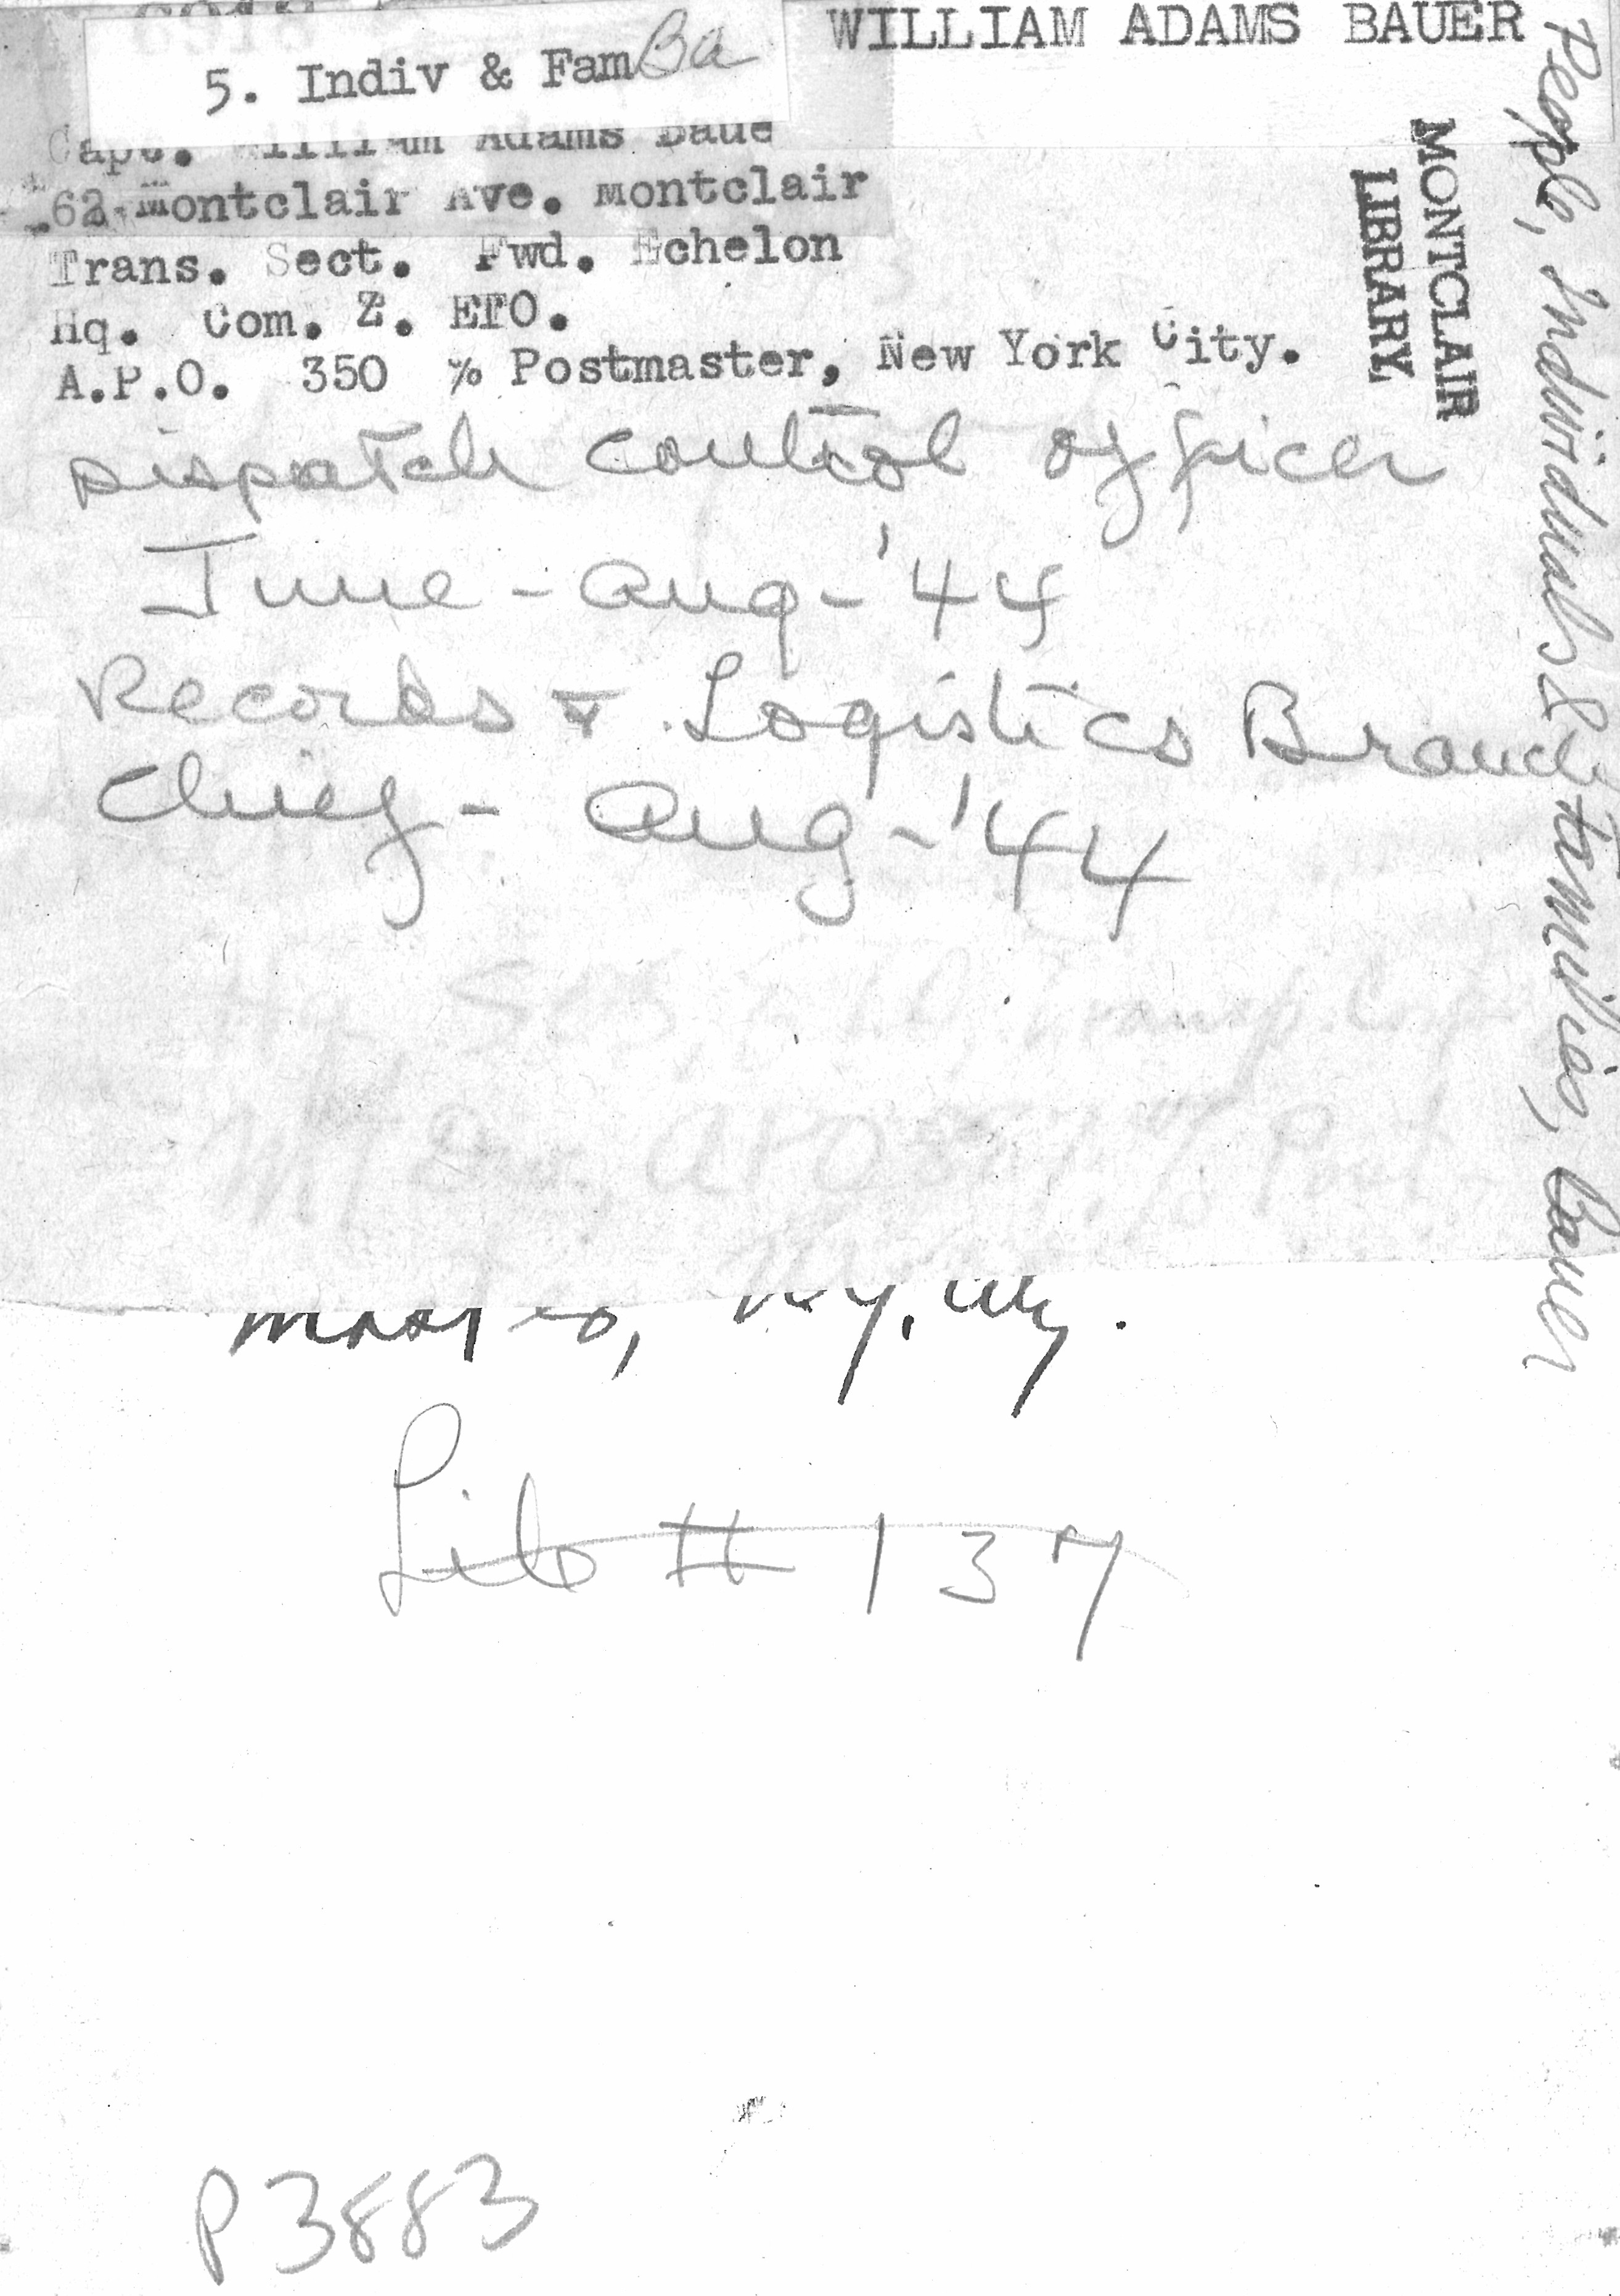 5. Indiv & Fam Ba
WILLIAM ADAMS BAUER
Capt. William Adams Baue
62 Montclair Ave. Montclair
Trans. Sect. Fwd. Echelon
Hq. Com. Z. ETO.
A.P.O. 350 % Postmaster, New York City.
MONTCLAIR
LIBRARY
People, Individuals & Families, Bauer
Dispatch Control Officer
June - Aug - '44
Records & Logistics Branch
Chief - Aug - '44
N.Y. City.
Lib # 137
P3883